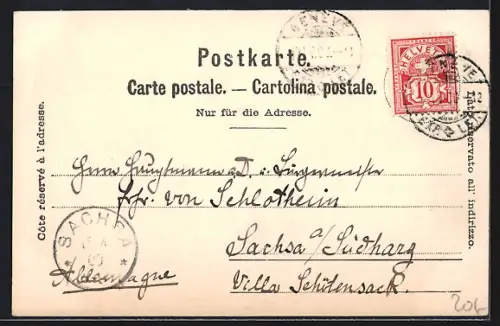 GENÈVE
Postkarte.
Carte postale. — Cartolina postale.
Nur für die Adresse.
HELVETIA
10
Côte réservé à l'adresse.
Lato riservato all' indirizzo.
Herrn Hauptmann a. D. u. Bürgermeister
Frhr. von Schlotheim
Sachsa a/ Südharz
Villa Schützensack.
Allemagne
SACHSA
20L